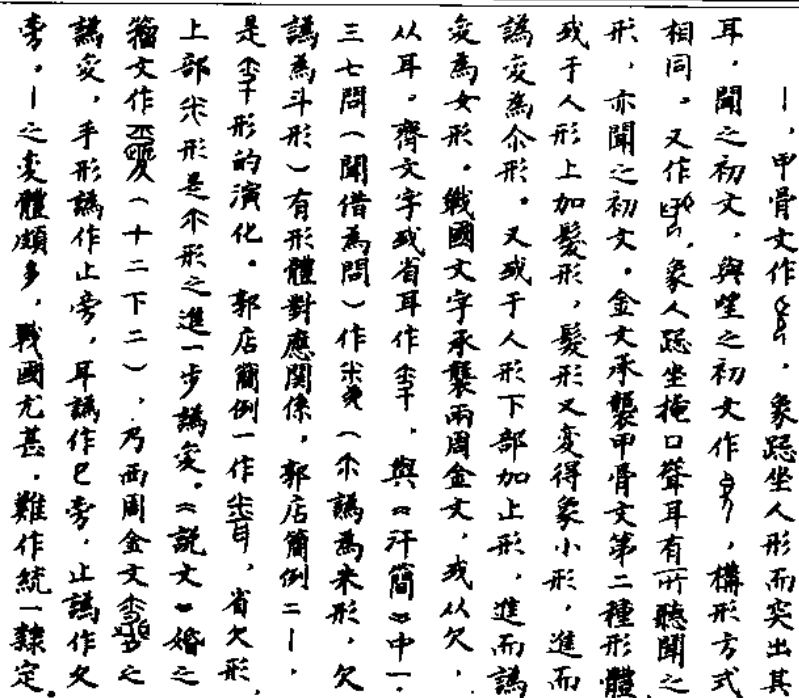 丨，甲骨文作，象跽坐人形而突出其
耳，聞之初文，與朢之初文作，構形方式
相同。又作，象人跽坐掩口聳耳有所聽聞之
形，亦聞之初文。金文承襲甲骨文第二種形體，
或于人形上加髮形，髮形又變得象小形，進而
譌變為尒形。又或于人形下部加止形，進而譌
變為女形。戰國文字承襲兩周金文，或从欠，
从耳。齊文字或省耳作，與《汗簡》中一·
三七問（聞借為問）作（尒譌為釆形，欠
譌為斗形）有形體對應關係，郭店簡例二丨，
是形的演化。郭店簡例一作，省欠形，
上部形是尒形之進一步譌變。《說文》婚之
籀文作（十二下二），乃西周金文之
譌變，手形譌作止旁，耳譌作巳旁，止譌作夂
旁。丨之変體頗多，戰國尤甚，難作統一隸定。